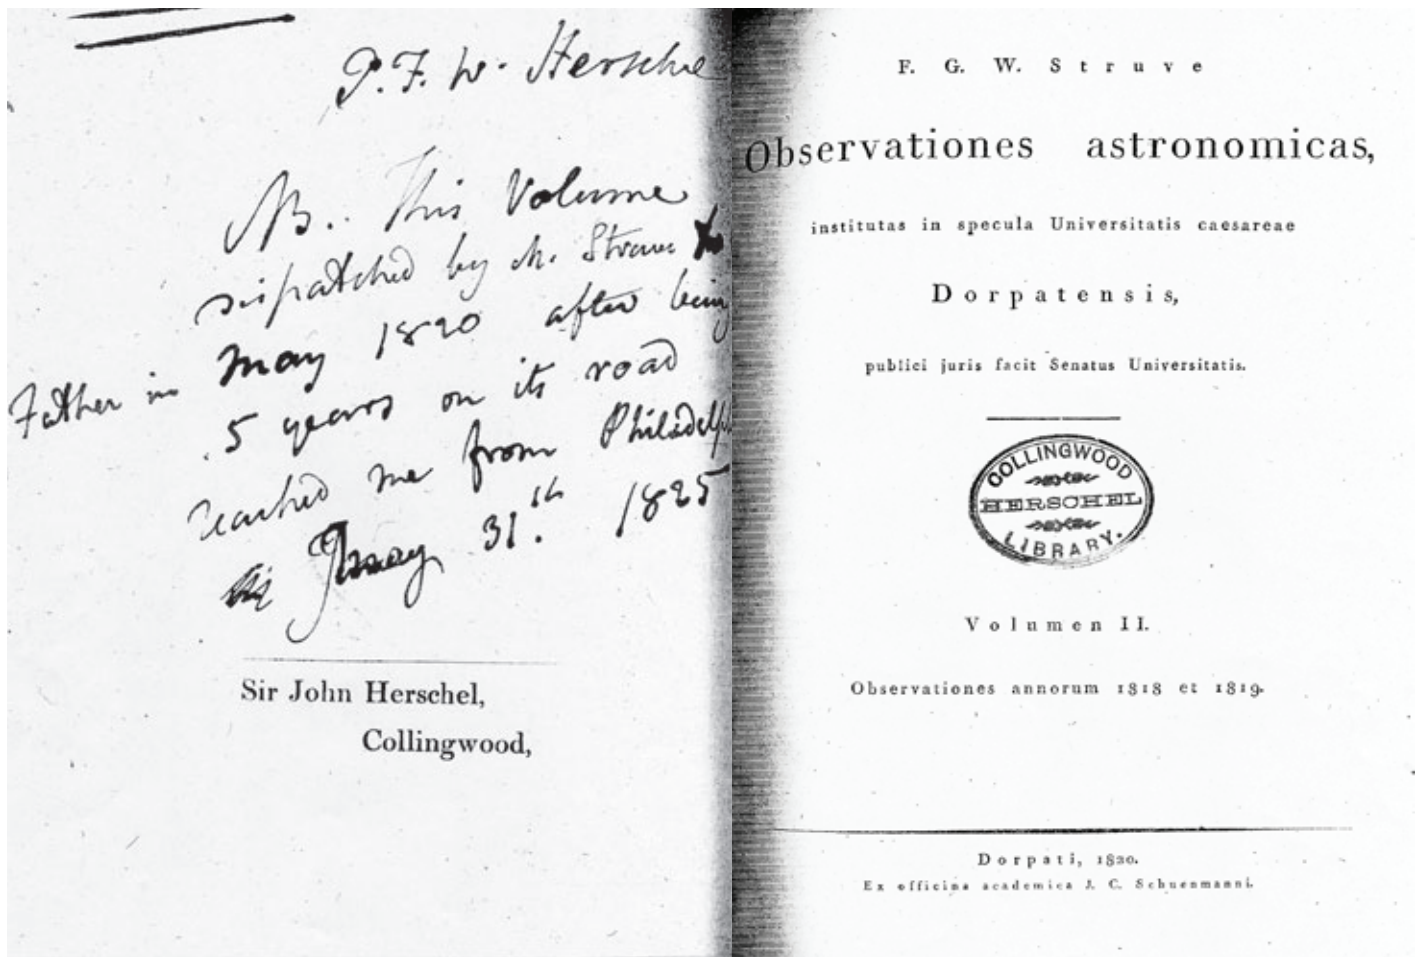 J. F. W. Herschel
NB. This Volume
dispatched by M. Struve to
Father in May 1820 after being
5 years on its road
reached me from Philadelph
May 31st. 1825
Sir John Herschel,
Collingwood,
F. G. W. Struve
Observationes astronomicas,
institutas in specula Universitatis caesareae
Dorpatensis,
publici juris facit Senatus Universitatis.
COLLINGWOOD
HERSCHEL
LIBRARY.
Volumen II.
Observationes annorum 1818 et 1819.
Dorpati, 1820.
Ex officina academica J. C. Schuenmanni.